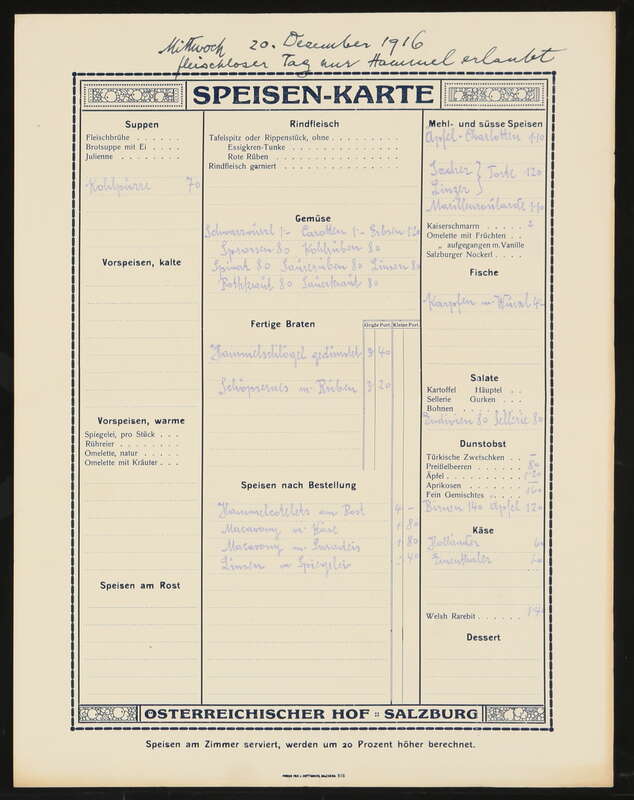 Mittwoch 20. Dezember 1916
fleischloser Tag nur Hammel erlaubt
SPEISEN-KARTE
Suppen
Fleischbrühe
Brotsuppe mit Ei
Julienne
Kohlpürre 70
Vorspeisen, kalte
Vorspeisen, warme
Spiegelei, pro Stück
Rühreier
Omelette, natur
Omelette mit Kräuter
Speisen am Rost
Rindfleisch
Tafelspitz oder Rippenstück, ohne
Essigkren-Tunke
Rote Rüben
Rindfleisch garniert
Gemüse
Schwarzwurzl 1·- Carotten 1·- Erbsen 1·20
Sprossen 80 Kohlrüben 80
Spinat 80 Sauerrüben 80 Linsen 80
Rothkraut 80 Sauerkraut 80
Fertige Braten
Große Port. Kleine Port.
Hammelschlögel gedünstet 3 40
Schöpsernes m Rüben 3 20
Speisen nach Bestellung
Hammelcotelets am Rost 4 -
Macarony m Käse 1 80
Macarony m Paradeis 1 80
Linsen m Spiegelei 40
Mehl- und süsse Speisen
Apfel-Charlotten 1·10
Sacher } Torte 1·20
Linzer }
Marillenroulade 1·10
Kaiserschmarn 2
Omelette mit Früchten
„ aufgegangen m. Vanille
Salzburger Nockerl
Fische
Karpfen m Wurzl 4-
Salate
Kartoffel Häuptel
Sellerie Gurken
Bohnen
Endivien 80 Sellerie 80
Dunstobst
Türkische Zwetschken
Preißelbeeren 80
Äpfel 1 20
Aprikosen
Fein Gemischtes 160
Birnen 140 Apfel 120
Käse
Holländer 60
Ementhaler
Welsh Rarebit 1·40
Dessert
ÖSTERREICHISCHER HOF :: SALZBURG
Speisen am Zimmer serviert, werden um 20 Prozent höher berechnet.